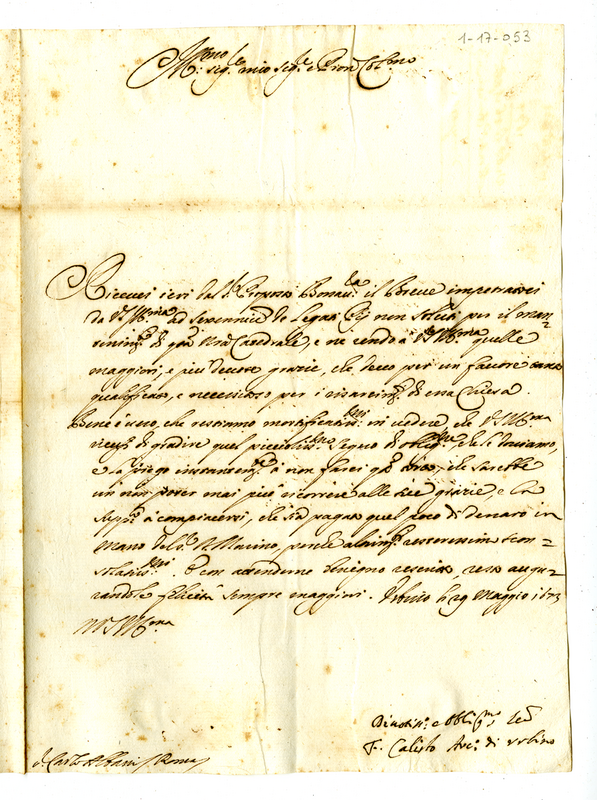 1-17-053
Ill.mo sig.re mio sig.re e Pron Col.mo
Ricevei ieri dal S. Proposto Bonav.ra il Breve impetratoci
da V.S. Ill.ma ad decennium de Legna non per il man-
tenim.to di q.ta n.ra Catedrale, e ne rendo à V.S. Ill.ma quelle
maggiori, e più devote grazie, che devo per un favore tanto
qualificato, e necessario per i risarcim.ti di essa Chiesa.
Bene è vero, che restiamo mortificatiss.mi in vedere, che V.S. Ill.ma
ricusi di gradire quel piccioliss.mo segno di che li doviamo,
e la priego instantem.te à non farci q.to torto, che sarebbe
un non poter mai più ricorrere alle sue grazie, e la
supp.co à compiacersi, che sia pagato quel poco di denaro in
mano del S. Marino, perche altrim.ti resteressimo scon-
solatiss.mi. E con attenderne benigno rescritto resto augu-
randole felicità sempre maggiori. Urbino li 29 Maggio 1673
Di V.S. Ill.ma
Devotiss.o e Obblig.mo Ser.
F. Calisto Arc.o di Urbino
S. Carlo Albani / Roma /